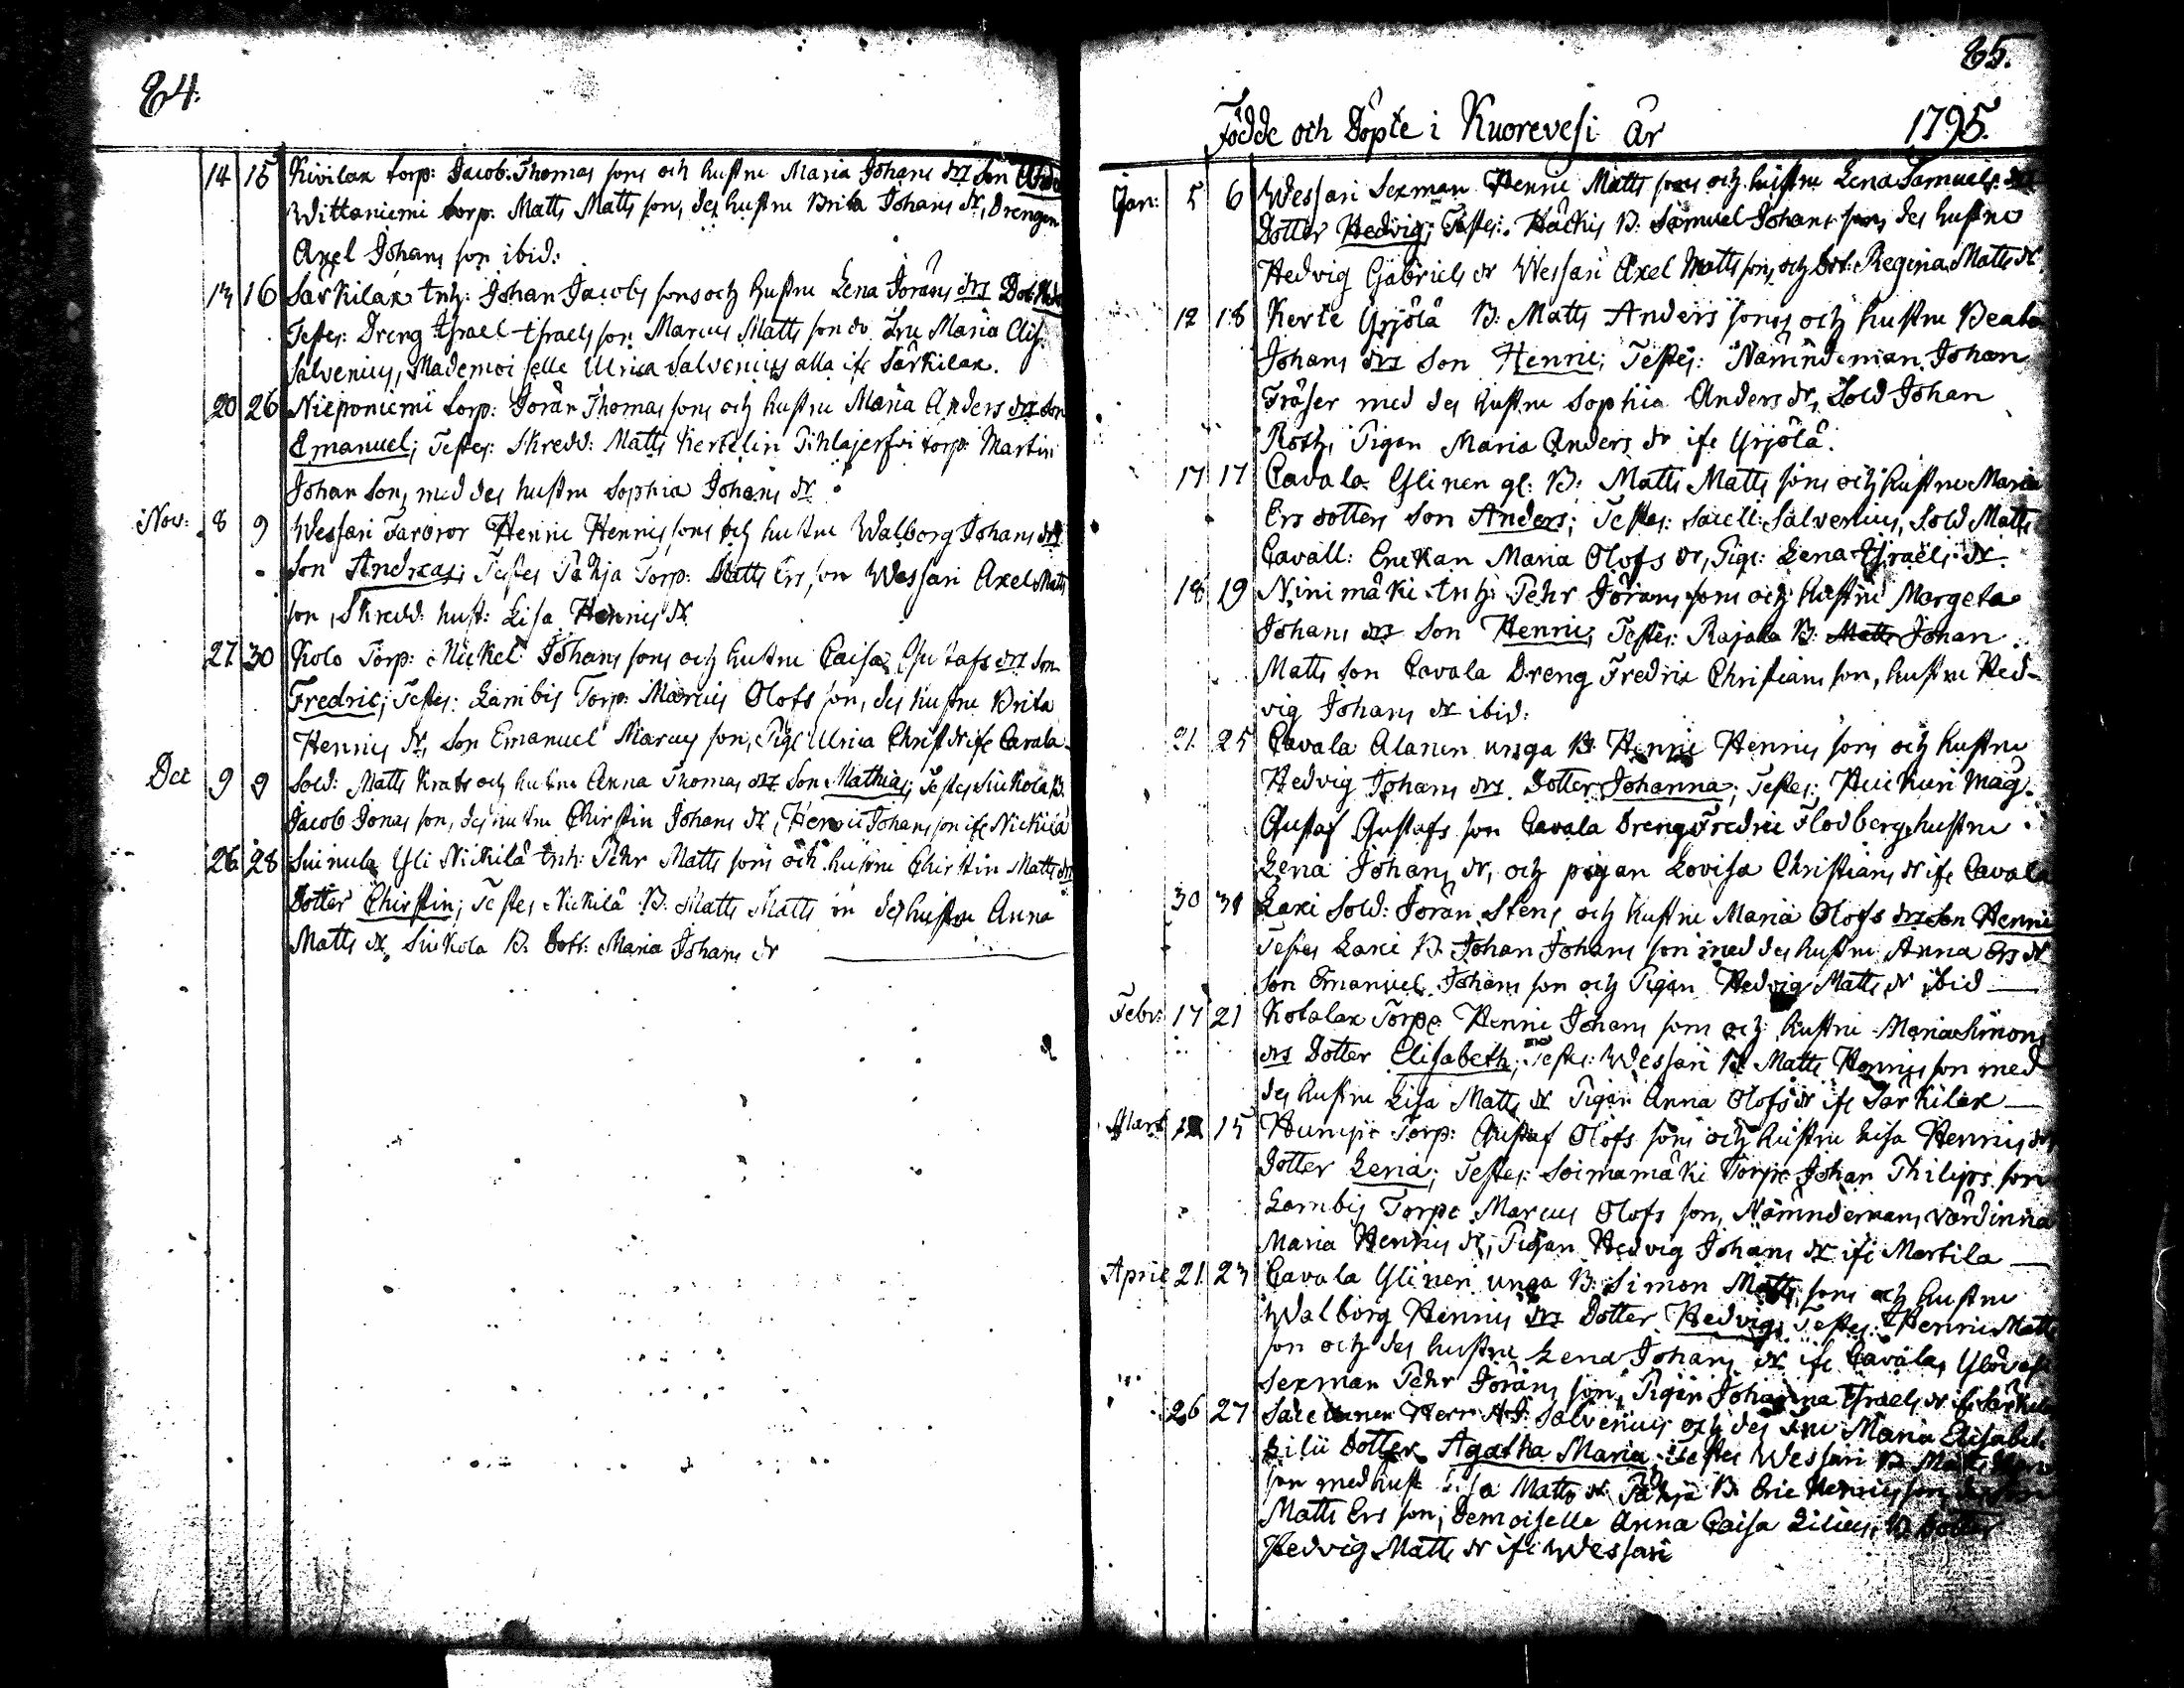 84.
14 15 Kivilax torp: Jacob Thomas sons och hustru Maria Johans drs Son
Wittaniemi torp. Matts Matts son, des hustru Brita Johans dr, Drengen
Axel Johans son ibid:
13 16 Särkilax tnh: Johan Jacobs sons och hustru Lena Jörans drs Dot:
Testes: Dreng Israel Israels son Marcus Matts son do Fru Maria Elis:
Salvenius, Mademoiselle Ulrica Salvenius alla ifr Särkilax.
20 26 Nieponiemi torp: Jöran Thomas sons och hustru Maria Anders drs Son
Emanuel; Testes: Skredd: Matts Kertelin Pihlajerfvi torp: Martin
Johan Son, med des hustru Sophia Johans dr
Nov: 8 9 Wessari Henric Henrics sons och hustru Walborg Johans drs
Son Andreas; Testes Pähja Torp: Matts Ers son Wessari Axel Matts
son, Skredd: hust: Lisa Henrics dr
27 30 Kolo Torp: Mickel Johans sons och hustru Caisa Gustafs drs Son
Fredric; Testes: Lambis Torp: Marcus Olofs son, des hustru Brita
Henrics dr, Son Emanuel Marcus son, Pige Ulrica Christ dr ifr Cavala
Dec 9 9 Sold: Matts Krats och hustru Anna Thomas drs Son Mathias; Testes Suikola B.
Jacob Jonas son, des hustru Chirstin Johans dr, Henric Johans son ifr Nickilä
26 28 Suinula Yli Nickilä tnh: Pehr Matts sons och hustru Chirstin Matts drs
Dotter Chirstin; Testes Nickilä B. Matts Matts son des hustru Anna
Matts dr, Suikola B. Dott: Maria Johans dr
85.
Födde och Döpte i Kuorevesi År 1795.
Jan: 5 6 Wessari Sexman Henric Matts sons och hustru Lena Samuels
Dotter Hedvig; Testes: Häckis B: Samuel Johans son, des hustru
Hedvig Gabriels dr Wessari Axel Matts son, och Dot: Regina Matts dr
12 18 Kerte Yrjölä B: Matts Anders sons och hustru Beata
Johans drs Son Henric; Testes: Nämndeman Johan
Fräser med des hustru Sophia Anders dr, Sold Johan
Roth, Pigan Maria Anders dr ifr Yrjölä.
17 17 Cavala Ylinen gl: B: Matts Matts sons och hustru Maria
Ers dotters Son Anders; Testes: Sacell: Salvenius, Sold Matts
Cavall: Enckan Maria Olofs dr, Pige: Lena Israels dr
18 19 Ninimäki tnh: Pehr Jörans sons och hustru Margeta
Johans drs Son Henric; Testes: Rajala B: Matts Johan
Matts son Cavala Dreng Fredric Christians son, hustru Hed-
vig Johans dr ibid:
21 25 Cavala Alanen unga B. Henric Henrics sons och hustru
Hedvig Johans drs Dotter Johanna; Testes: Huikuri Mäg
Gustaf Gustafs son Cavala Dreng Fredric Flodberg hustru
Lena Johans dr, och pigan Lovisa Christians dr ifr Cavala
30 31 Laxi Sold: Jöran Stens och hustru Maria Olofs drs Son Henric
Testes Laxi B. Johan Johans son med des hustru Anna Ers dr
Son Emanuel Johans son och Pigan Hedvig Matts dr ibid
Febr: 17 21 Kotalax Torpe Henric Johans sons och hustru Maria Simons
drs Dotter Elisabeth; Testes: Wessari B. Matts Henrics son med
des hustru Lisa Matts dr Pigan Anna Olofs dr ifr Särkilax
Mart 15 Torp: Gustaf Olofs sons och hustru Lisa Henrics drs
Dotter Lena; Testes: Soimamäki Torp: Johan Philips son
Lambis Torpe Marcus Olofs son, Nämndemans värdinna
Maria Henrics dr, Pigan Hedvig Johans dr ifr Martila
April 21 23 Cavala Ylinen unga B. Simon Matts sons och hustru
Walborg Henrics drs Dotter Hedvig; Testes: Henric Matts
son och des hustru Lena Johans dr ifr Cavala,
Sexman Pehr Jörans son, Pigan Johanna Israels dr ifr
26 27 Herr Salvenius och des Fru Maria Elisabet
Dotter Agatha Maria; Testes Wessari B. Matts
son med hust Lisa Matts dr Pähjä B. Eric Henrics son,
Matts Ers son, Demoiselle Anna Caisa Lilius, B. Dotter
Hedvig Matts dr ifr Wessari